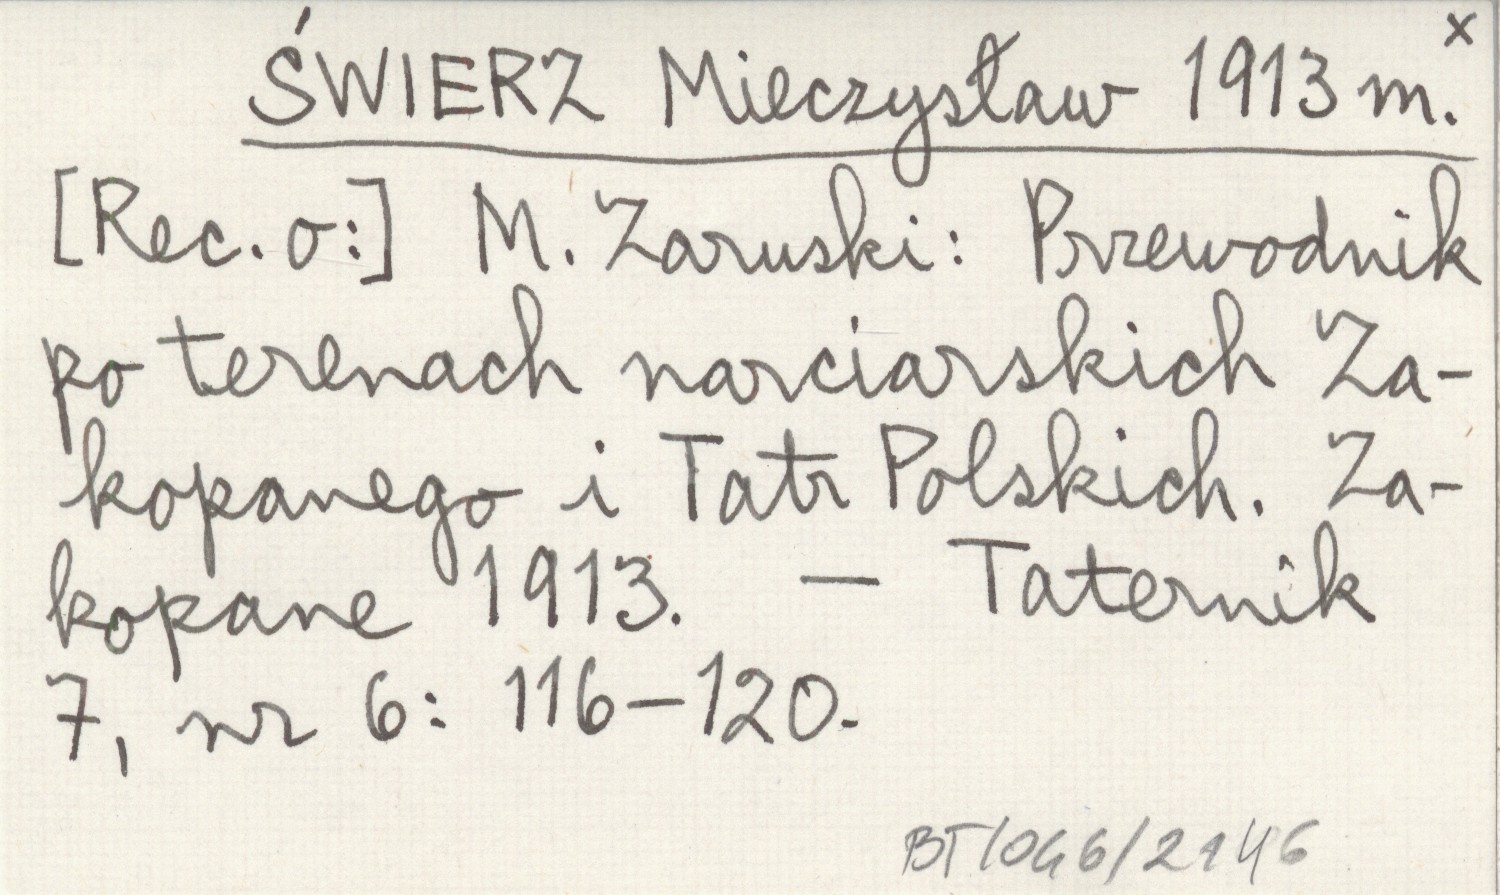 x
ŚWIERZ Mieczysław 1913 m.
[Rec. o:] M. Zaruski: Przewodnik
po terenach narciarskich Za-
kopanego i Tatr Polskich. Za-
kopane 1913. — Taternik
7, nr 6: 116-120.
BT/046/2146